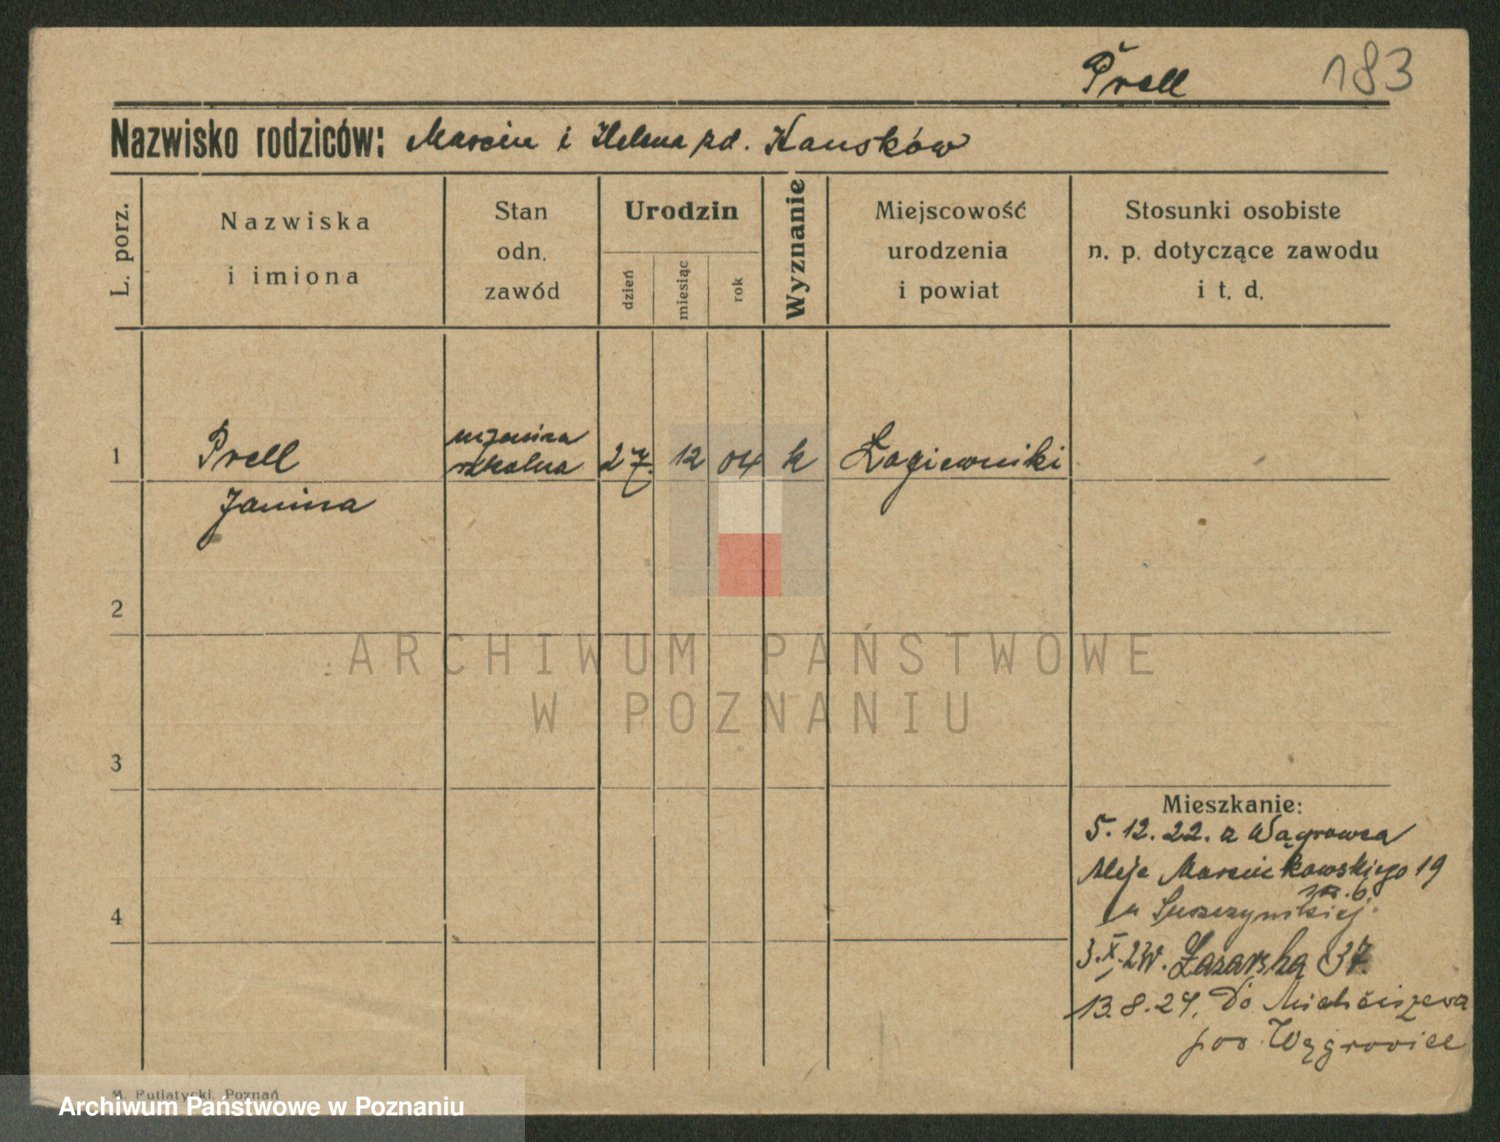 Prell 183
Nazwisko rodziców: Marcin i Helena zd. Kausków
L. porz.
Nazwiska
i imiona
Stan
odn.
zawód
Urodzin
dzień
miesiąc
rok
Wyznanie
Miejscowość
urodzenia
i powiat
Stosunki osobiste
n. p. dotyczące zawodu
i t. d.
1 Prell uczenica szkolna 27. 12 04 k Łagiewniki
Janina
2
3
4
ARCHIWUM PAŃSTWOWE
W POZNANIU
Mieszkanie:
5.12.22. z Wągrowca
Aleje Marcinkowskiego 19
u
3.X. Łazarska 37.
13.8.24. Do
pow. Wągrowiec
M. Putiatycki, Poznań
Archiwum Państwowe w Poznaniu